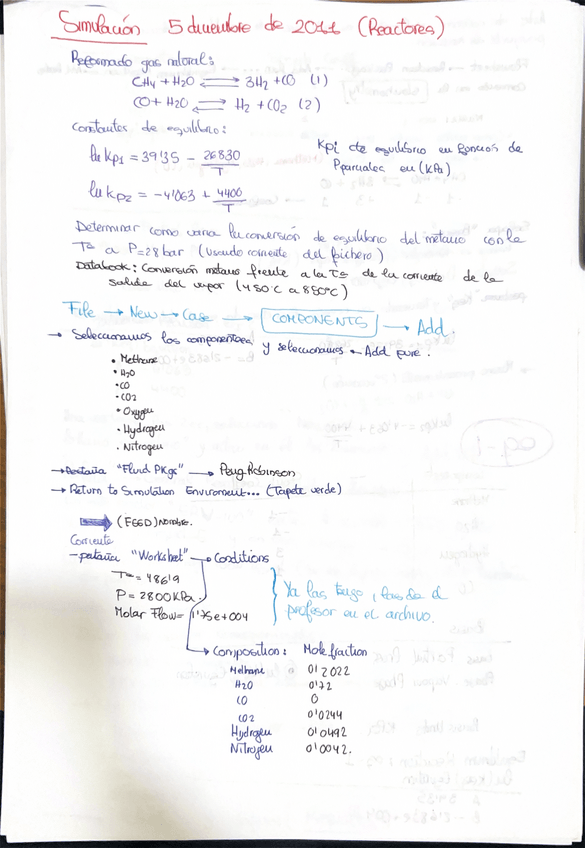 Simulación 5 diciembre de 2011 (Reactores)
Reformado gas natural:
CH4 + H2O ⇌ 3H2 + CO (1)
CO + H2O ⇌ H2 + CO2 (2)
Constantes de equilibrio:
ln Kp1 = 39'35 - 26830/T
Kpi cte equilibrio en función de
Pparciales en (KPa)
ln Kp2 = -4'063 + 4400/T
Determinar como varia la conversión de equilibrio del metano con la
Tª a P=28 bar (usando corriente del fichero)
Databook: Conversión metano frente a la Tª de la corriente de la
salida del vapor (450°C a 850°C)
File → New → Case → COMPONENTS → Add.
→ Seleccionamos los componentes, y seleccionamos ← Add pure.
• Methane
• H2O
• CO
• CO2
• Oxygen
• Hydrogen
• Nitrogen
→ Pestaña "Fluid PKgs" → Peng-Robinson
→ Return to Simulation Enviroment... (Tapete verde)
⇒ (FEED) Nombre.
Corriente
- pestaña "Worksheet" → Conditions
Tª = 486'9
P = 2800 KPa.
Molar Flow = 1'75e+004
Ya las tengo, las da el
profesor en el archivo.
→ Composition: Mole fraction
Methane 0'2022
H2O 0'72
CO 0
CO2 0'0244
Hydrogen 0'0492
Nitrogen 0'0042.